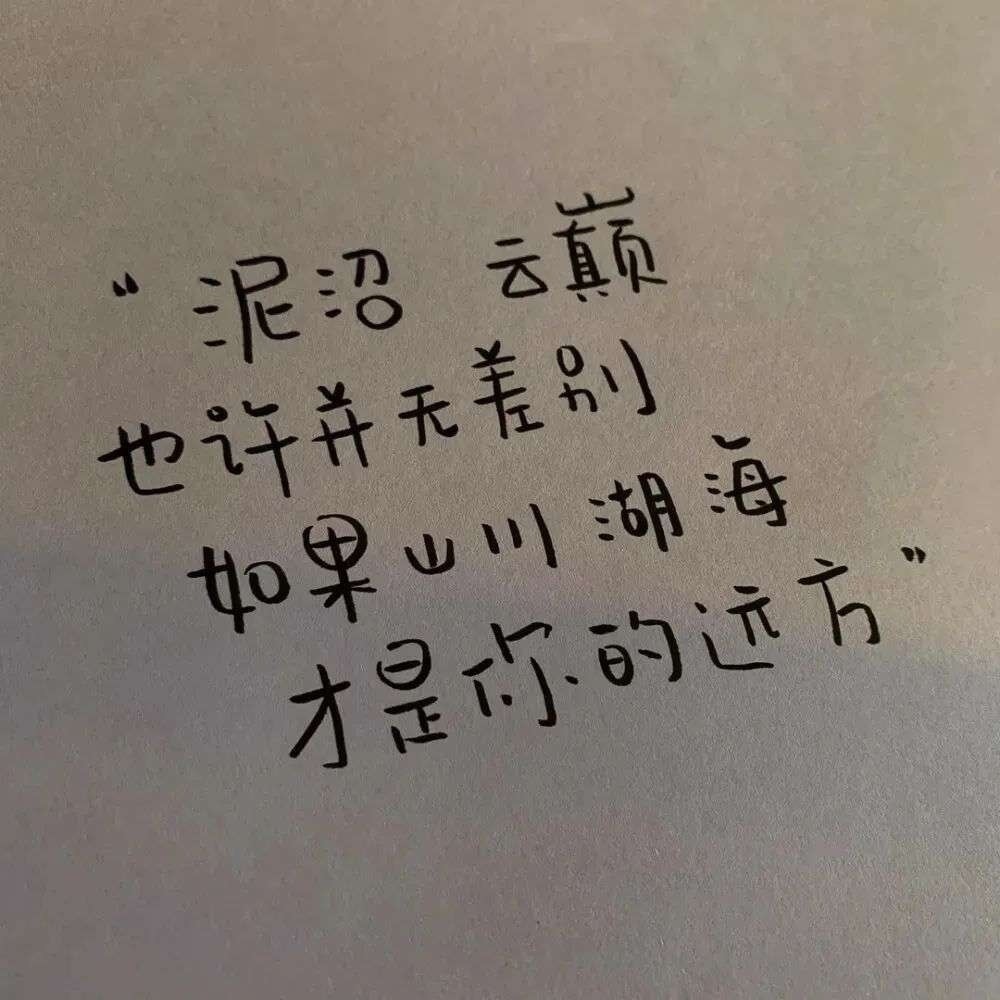 “泥沼 云巅
也许并无差别
如果山川湖海
才是你的远方”